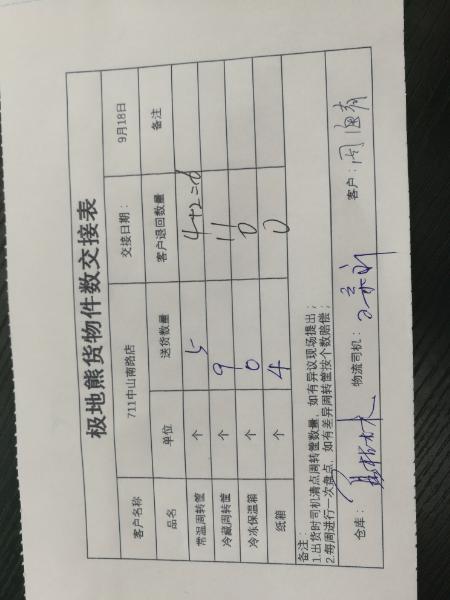 极地熊货物件数交接表
客户名称 711中山南路店 交接日期: 9月18日
品名 单位 送货数量 客户退回数量 备注
常温周转筐 个 5 4+2=6
冷藏周转筐 个 9 11
冷冻保温箱 个 0 0
纸箱 个 4 0
备注:
1.出货时司机清点周转筐数量,如有异议现场提出;
2.每周进行一次盘点,如有差异周转筐按个数赔偿;
仓库: 物流司机: 客户: